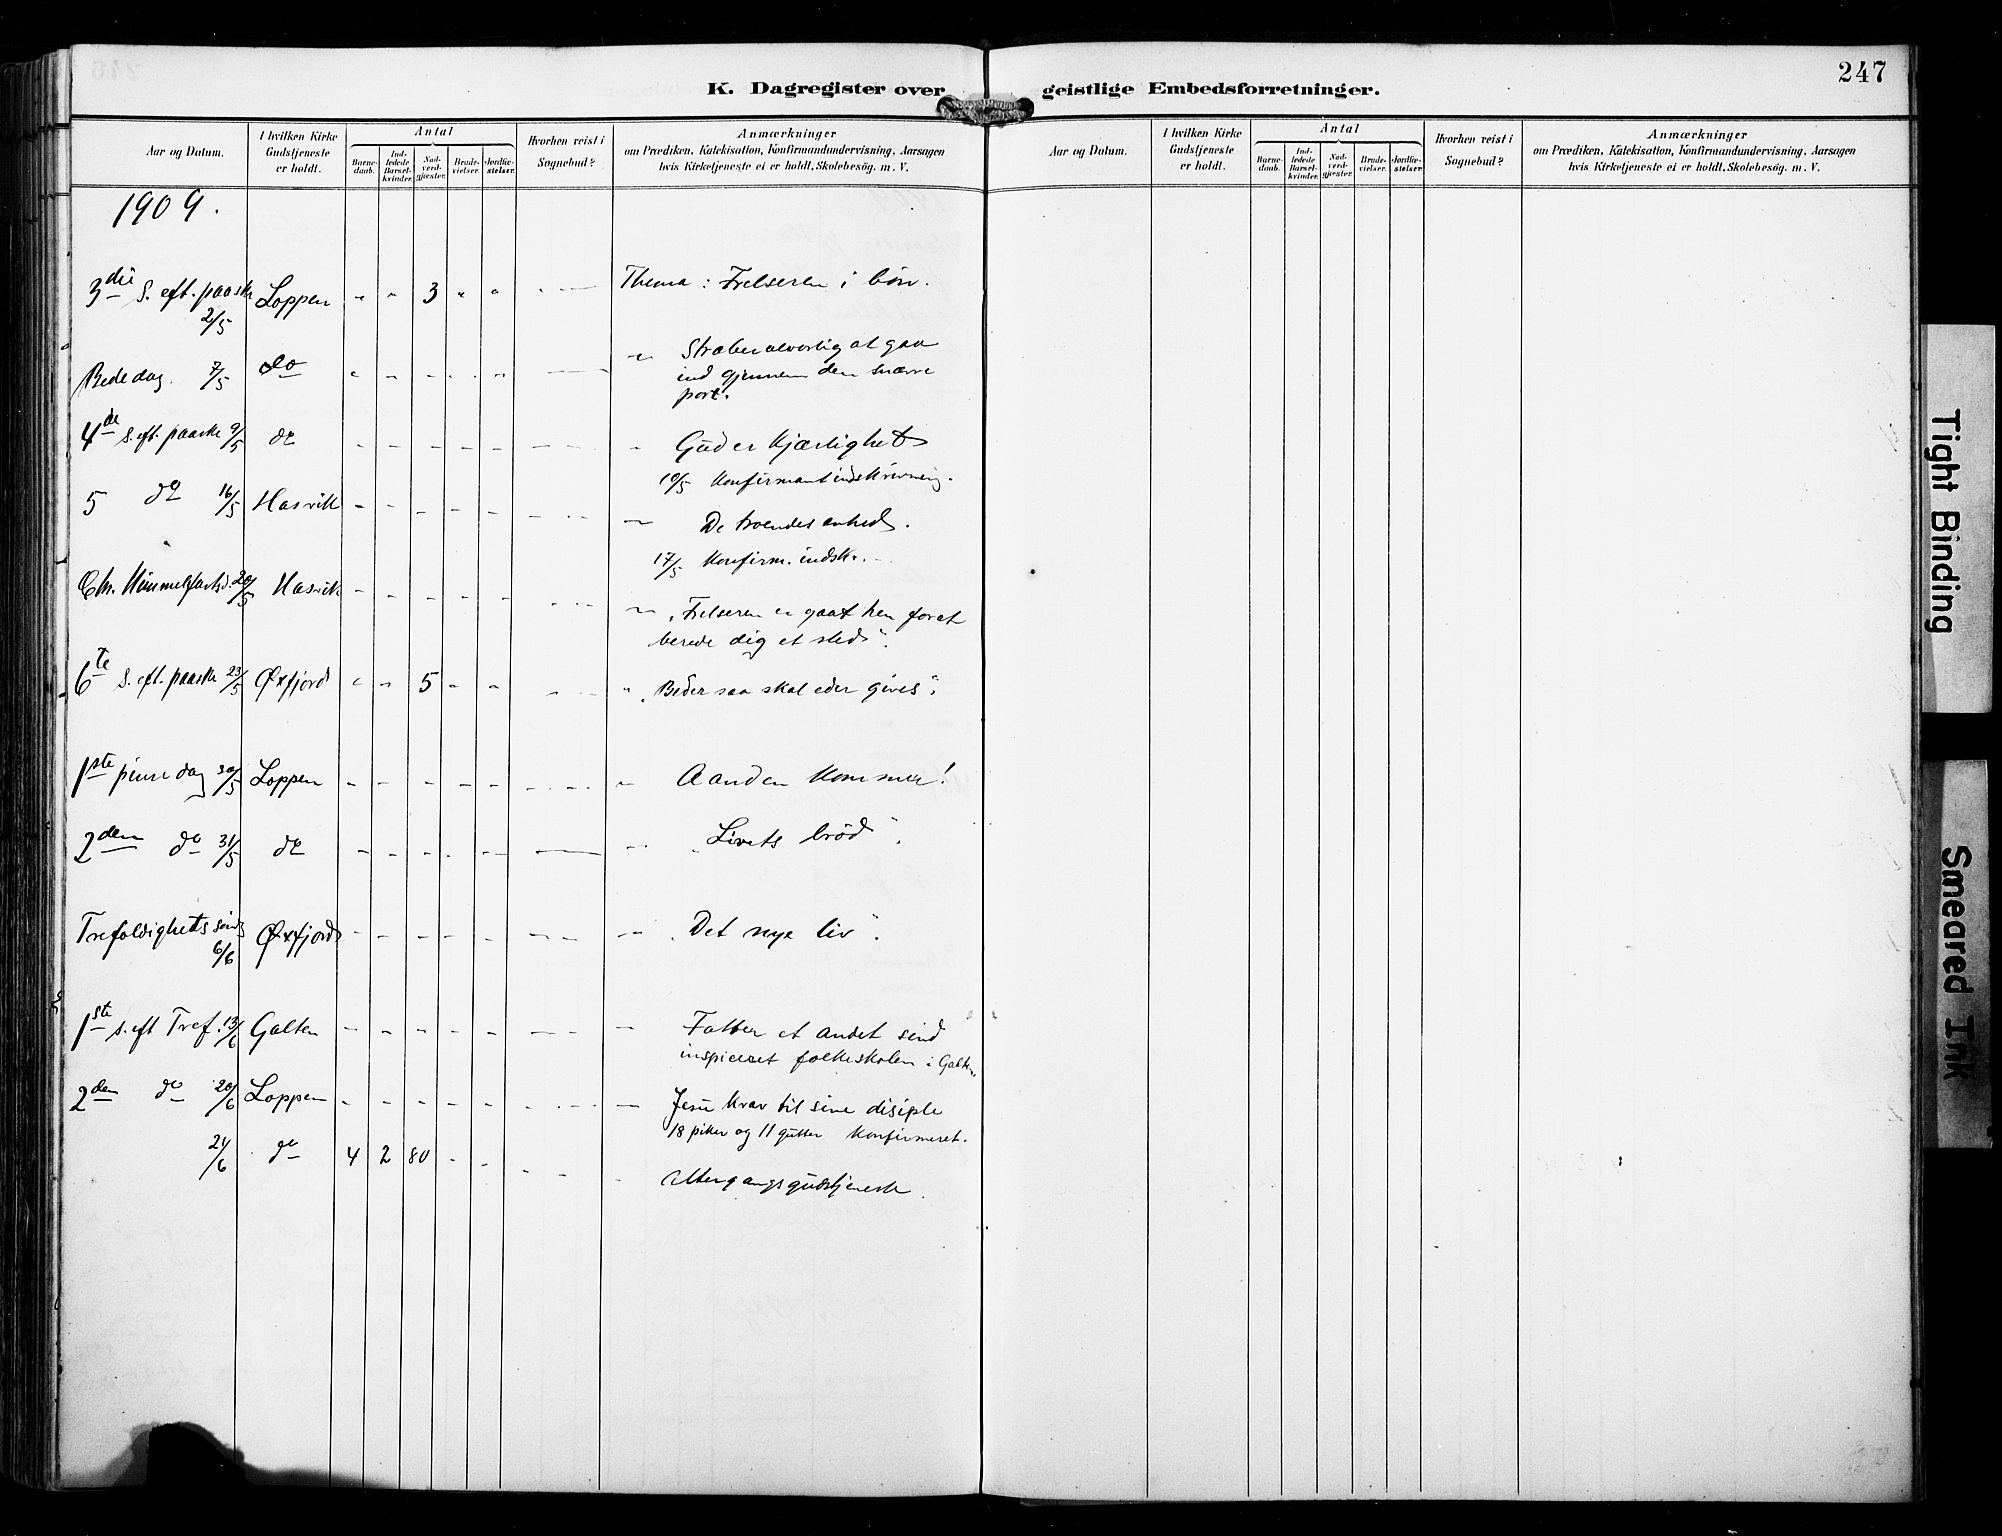 247
K. Dagregister over geistlige Embedsforretninger.
Aar og Datum.
I hvilken Kirke Gudstjeneste er holdt.
Antal
Barnedaab.
Indledede Barselkvinder.
Nadverdgjæster.
Brudevielser.
Jordfæstelser.
Hvorhen reist i Sognebud?
Anmærkninger
om Prædiken, Katekisation, Konfirmandundervisning, Aarsagen
hvis Kirketjeneste ei er holdt, Skolebesøg. m. V.
Aar og Datum.
I hvilken Kirke Gudstjeneste er holdt.
Antal
Barnedaab.
Indledede Barselkvinder.
Nadverdgjæster.
Brudevielser.
Jordfæstelser.
Hvorhen reist i Sognebud?
Anmærkninger
om Prædiken, Katekisation, Konfirmandundervisning, Aarsagen
hvis Kirketjeneste ei er holdt, Skolebesøg. m. V.
1909.
3die S. eft. paaske 2/5 Loppen " " 3 " " Thema: Frelseren i bön.
Bededag. 7/5 do " Stræber alvorlig at gaa
ind gjennem den snævre
port.
4de S. eft. paaske 9/5 do " Gud er kjærlighet
10/5 Konfirmantindskrivning.
5 do 16/5 Hasvik De troendes enhed.
17/5 Konfirm. indskr.
Chr. Himmelfartsd. 20/5 Hasvik „Frelseren er gaat hen forat
berede dig et sted“.
6te S. eft. paaske 23/5 Øxfjord " " 5 " " " „Beder saa skal eder gives“.
1ste pinsedag 30/5 Loppen Aanden kommer!
2den do 31/5 do „Livets bröd“.
Trefoldighets sönd. 6/6 Øxfjord „Det nye liv“.
1ste s. eft Tref. 13/6 Galten Fatter et andet sind
inspiceret folkeskolen i Galten.
2den do 20/6 Loppen Jesu krav til sine disiple
18 piker og 11 gutter konfirmeret.
21/6 do 4 2 80 Altergangsgudstjeneste.
Tight Binding
Smeared Ink